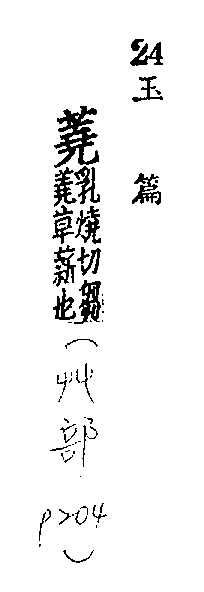 24 玉篇
蕘乳燒切芻
蕘草薪也
（艸部
P204）